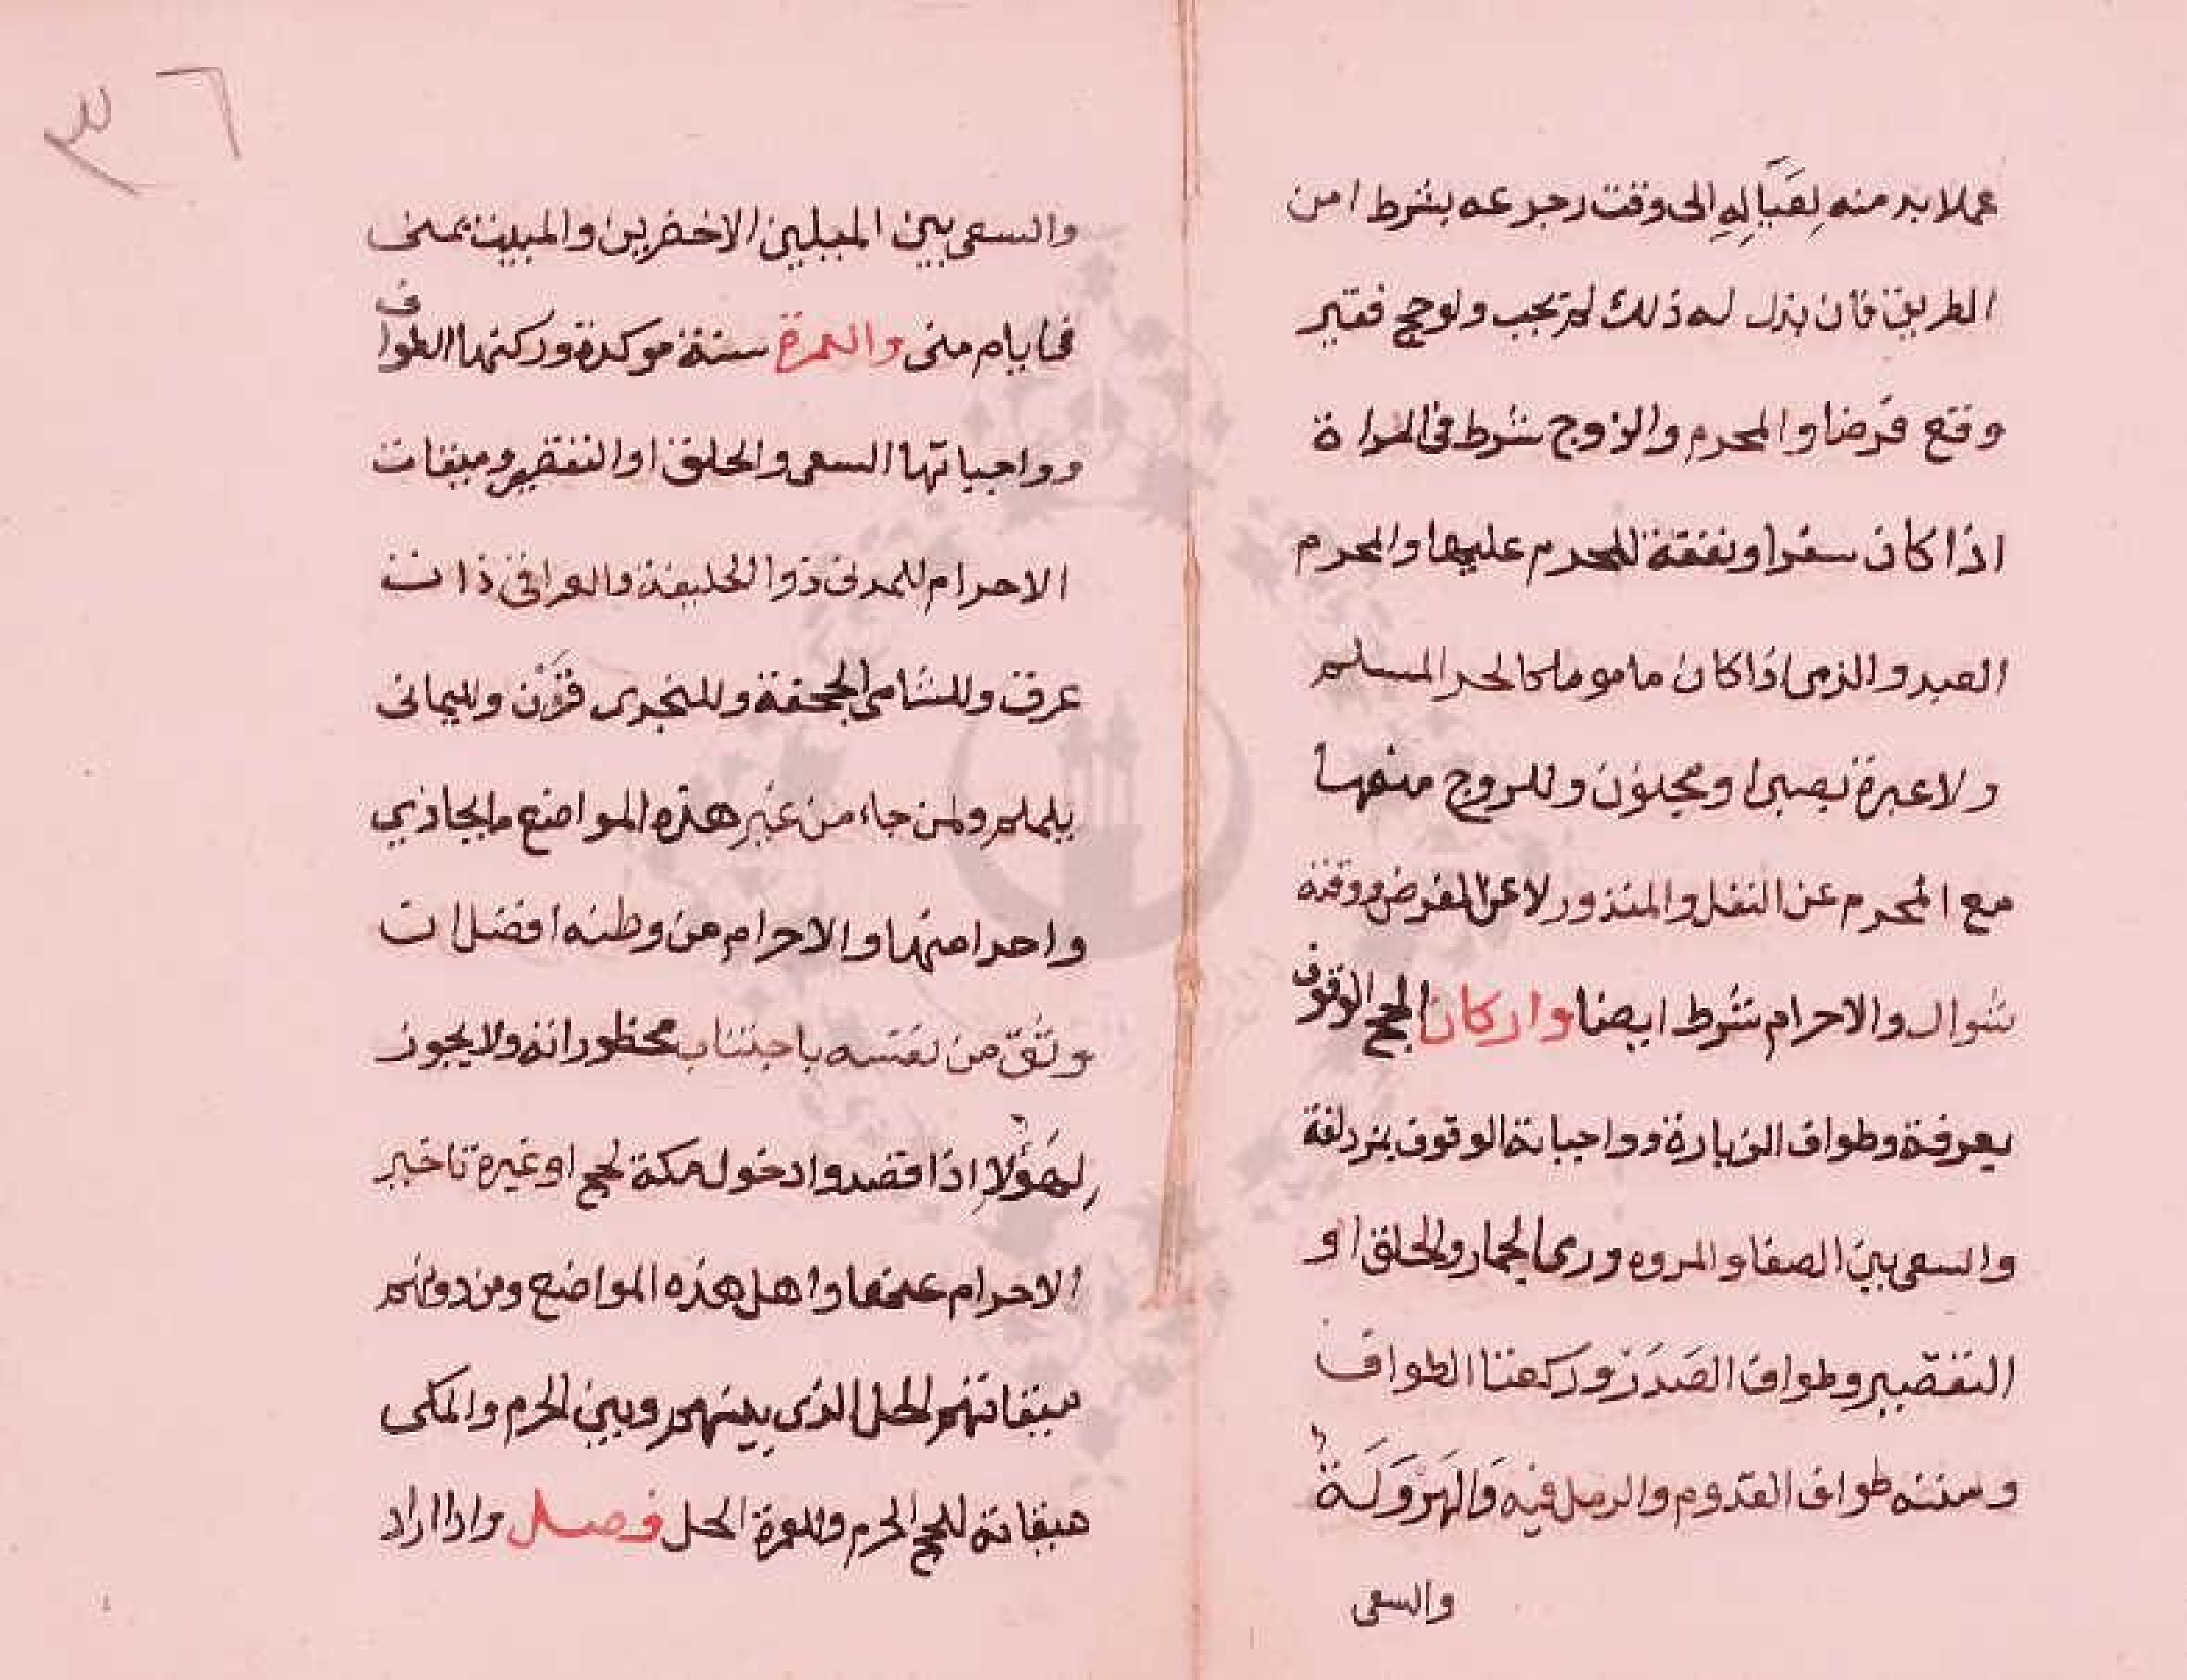 عملا بد منه لِعَيَالِهِ الى وقت رجوعه بشرط امن
الطريق فان بذل له ذلك لم يجب ولو حج فقير
وقع فرضا والمحرم والزوج شرط في المراة
اذا كان سفرا ونفقة المحرم عليها والمحرم
العبد والذمى اذا كان مامونا كالحر المسلم
ولا عبرة بصبى ومجنون وللزوج منعها
مع المحرم عن النفل والمنذور لا عن الفرض ووقته
شوال والاحرام شرط ايضا واركان الحج الوقوف
بعرفة وطواف الزيارة وواجباته الوقوف بمزدلفة
والسعى بين الصفا والمروه ورمى الجمار والحلق او
التقصير وطواف الصَدَر وركعتا الطواف
وسننه طواف القدوم والرمل فيه وَالهَرْوَلَةُ
والسعى
٣٦
والسعى بين الميلين الاخضرين والمبيت بمنى
فى ايام منى والعمرة سنة موكدة وركنها الطواف
وواجباتها السعى والحلق او التقصير وميقات
الاحرام للمدنى ذو الحليفة والعراقى ذات
عرق وللشامى الجحفة وللنجدى قَرْن ولليمانى
يلملم ولمن جاء من غير هذه المواضع ما يحاذي
واحدا منها والاحرام من وطنه افضل ان
وثق من نفسه باجتناب محظوراته ولا يجوز
لِهَؤُلاءِ اذا قصدوا دخول مكة لحج او غيره تاخير
الاحرام عنها واهل هذه المواضع ومن دونهم
ميقاتهم الحل الذى بينهم وبين الحرم والمكى
ميقاته للحج الحرم وللعمرة الحل فصل واذا اراد